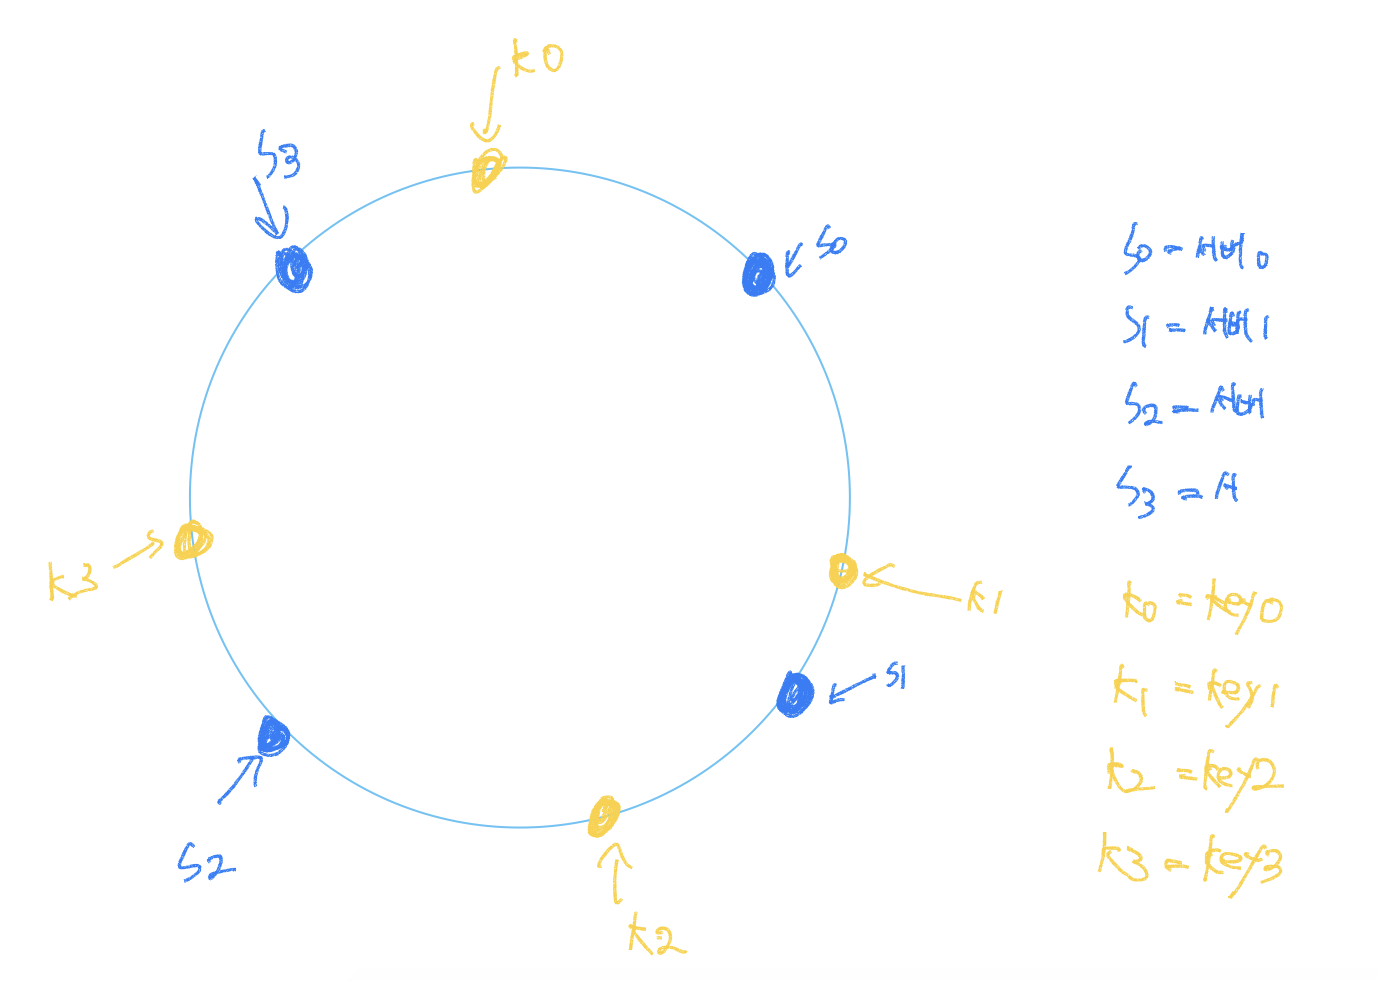 k0
S3
S0
k3
k1
S1
S2
k2
S0 = 서버0
S1 = 서버1
S2 = 서버
S3 = 서
k0 = key0
k1 = key1
k2 = key2
k3 = key3